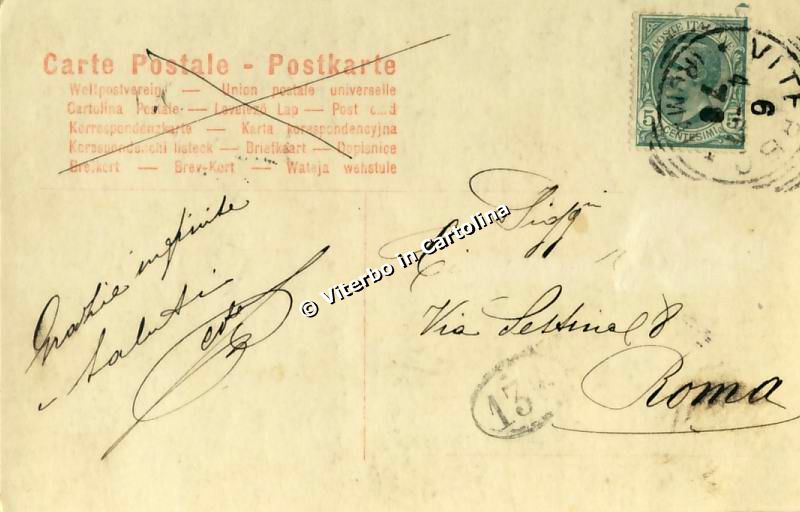 Carte Postale - Postkarte
Weltpostverein — Union postale universelle
Cartolina Postale — Levelezö Lap — Post card
Korrespondenzkarte — Karta korespondencyjna
Korespondenčhi listeck — Briefkaart — Dopisnice
Brefkort — Brev-Kort — Wataja wehstule
POSTE ITALIANE
5 CENTESIMI 5
VITERBO
Grazie infinite
saluti
© Viterbo in Cartolina
Sigg
Via Sestina 8
Roma
13